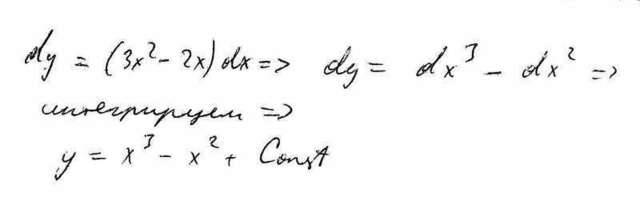 dy = (3x² - 2x) dx => dy = dx³ - dx² =>
интегрируем =>
y = x³ - x² + Const